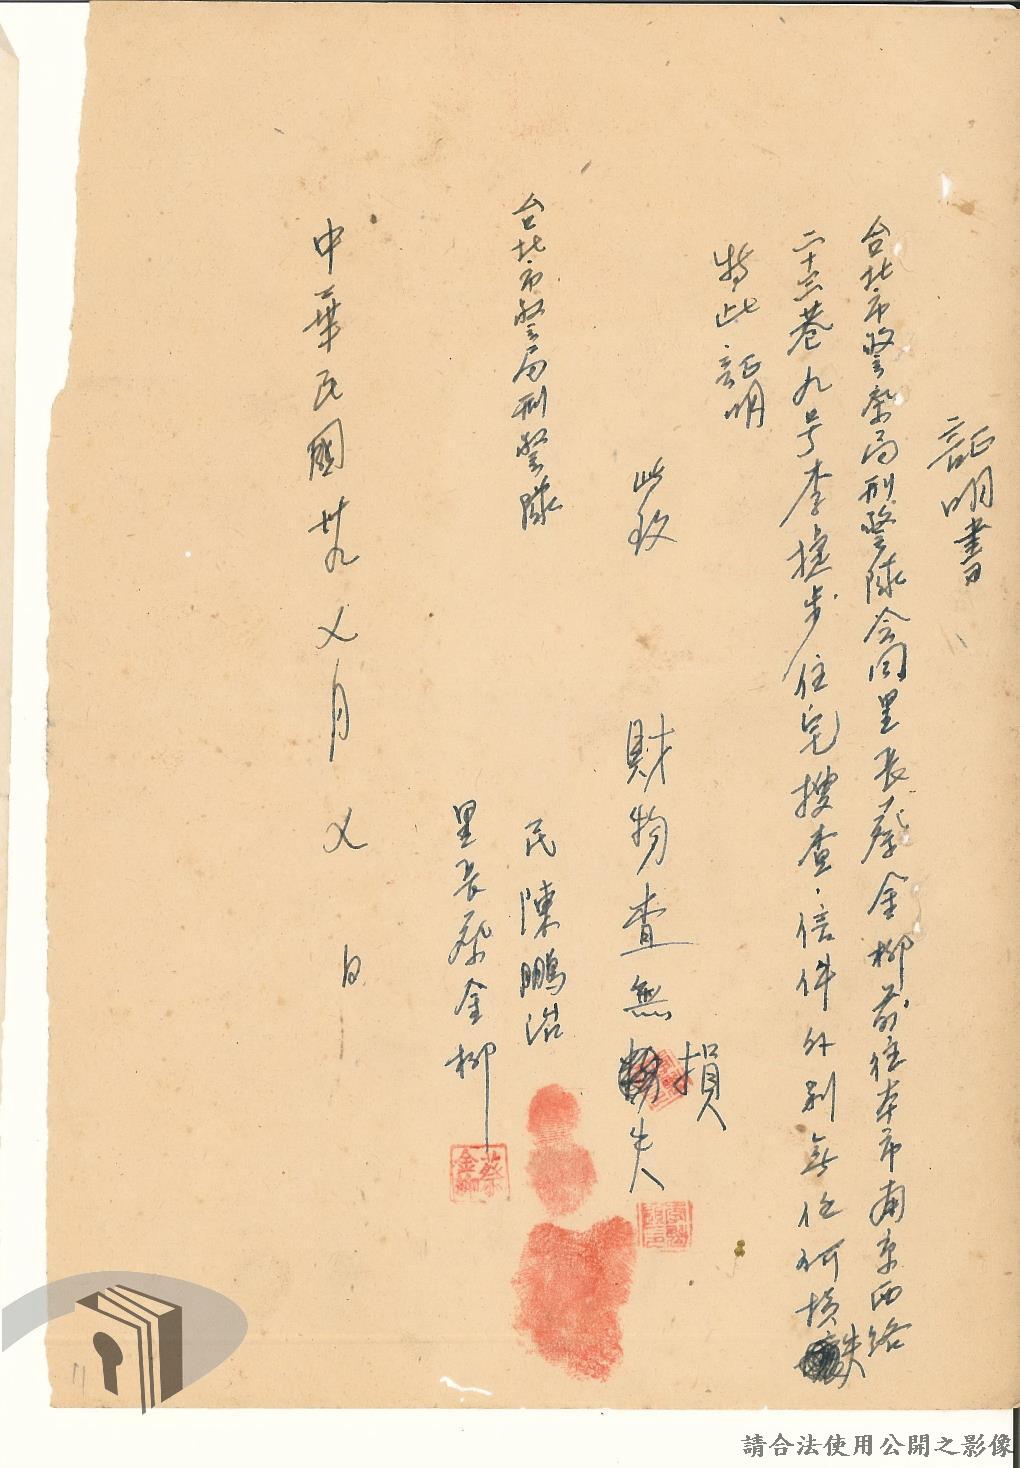 証明書
台北市警察局刑警隊会同里長蔡金柳前往本市南京西路
二十三巷九号李搖步住宅搜查・信件外別無任何損失
特此証明
此致
財物查無損失
台北市警局刑警隊
民陳鵬
里長蔡金柳
蔡金柳
中華民國卅九乂月乂日
請合法使用公開之影像